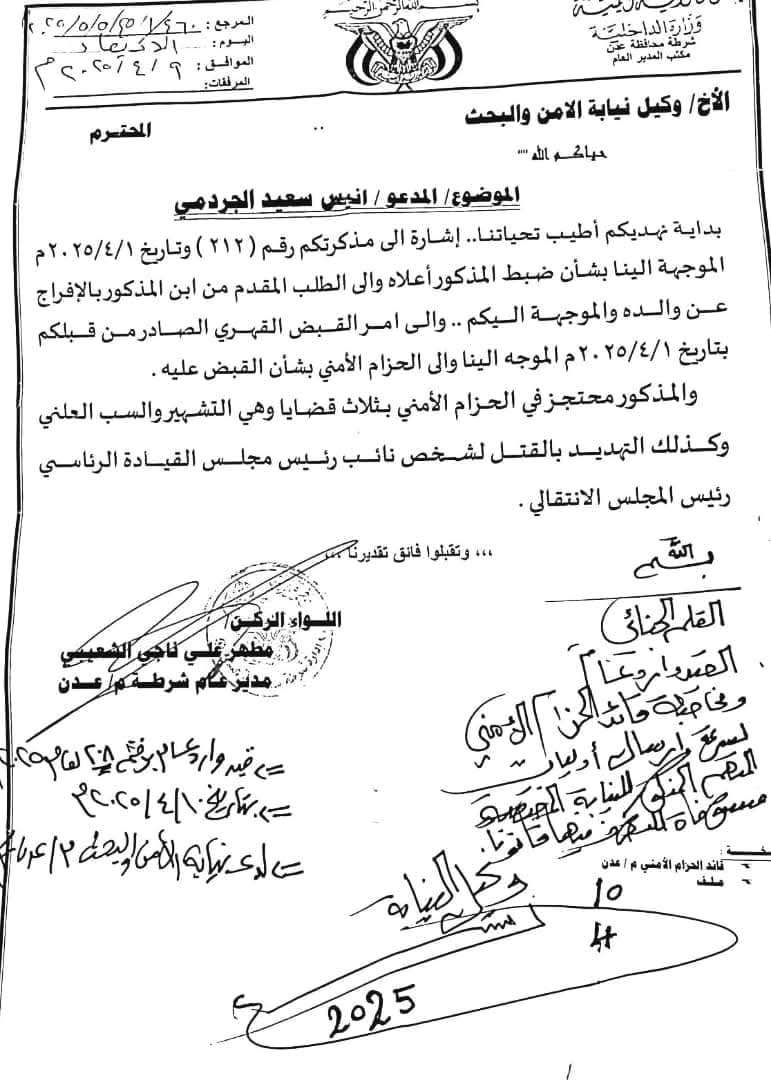 بسم الله الرحمن الرحيم
وزارة الداخلية
شرطة محافظة عدن
مكتب المدير العام
المرجع:
اليوم: الاربعاء
الموافق: ٢٠٢٥/٤/٩م
المرفقات:
الأخ/ وكيل نيابة الامن والبحث
المحترم
حياكم الله ""
الموضوع/ المدعو/ انيس سعيد الجردمي
بداية نهديكم أطيب تحياتنا.. إشارة الى مذكرتكم رقم (٢١٢) وتاريخ ٢٠٢٥/٤/١م
الموجهة الينا بشأن ضبط المذكور أعلاه والى الطلب المقدم من ابن المذكور بالإفراج
عن والده والموجهة اليكم .. والى امر القبض القهري الصادر من قبلكم
بتاريخ ٢٠٢٥/٤/١م الموجه الينا والى الحزام الأمني بشأن القبض عليه .
والمذكور محتجز في الحزام الأمني بثلاث قضايا وهي التشهير والسب العلني
وكذلك التهديد بالقتل لشخص نائب رئيس مجلس القيادة الرئاسي
رئيس المجلس الانتقالي .
،،، وتقبلوا فائق تقديرنا ،،،
اللواء الركن/
مطهر علي ناجي الشعيبي
مدير عام شرطة م/ عدن
بسم الله
القلم الجنائي
ومخاطبة قائد الحزام الأمني
لسرعة إرسال أوليات
المتهم المذكور للنيابة المختصة
وكيل النيابة
10
4
2025
قيد وارد عام برقم ٢٠٨ لعام ٢٠٢٥م
بتاريخ ٢٠٢٥/٤/١٠م
لدى نيابة الأمن والبحث م/عدن
قائد الحزام الأمني م/ عدن
ملف